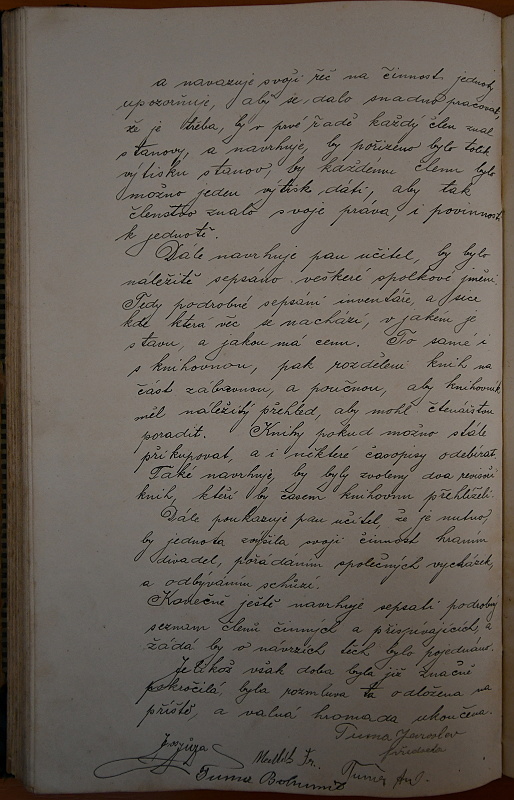 a navazuje svoji řeč na činnost jednoty
upozorňuje, aby se dalo snadno pracovat,
že je třeba, by v prvé řadě každý člen znal
stanovy, a navrhuje, by pořízeno bylo tolik
výtisku stanov, by každému členu bylo
možno jeden výtisk dáti, aby tak
členstvo znalo svoje práva, i povinnosti
k jednotě.
Dále navrhuje pan učitel, by bylo
náležitě sepsáno veškeré spolkové jmění.
Tedy podrobné sepsání inventáře, a sice
kde která věc se nachází, v jakém je
stavu, a jakou má cenu. To samé i
s knihovnou, pak rozdělení knih na
část zábavnou, a poučnou, aby knihovník
měl náležitý přehled, aby mohl čtenářstvu
poradit. Knihy pokud možno stále
přikupovat, a i některé časopisy odebírat.
Také navrhuje, by byly zvoleny dva revisoři
knih, kteří by časem knihovnu přehlíželi.
Dále poukazuje pan učitel, že je nutno,
by jednota zvýšila svoji činnost hraním
divadel, pořádáním společných vycházek,
a odbýváním schůzí.
Konečně ještě navrhuje sepsati podrobný
seznam členů činných a přispívajících, a
žádá by o návrzích těch bylo pojednáno.
Jelikož však doba byla již značně
pokročilá, byla rozmluva ta odložena na
příště, a valná hromada ukončena.
Tuma Jaroslav
předseda
Fr.
Tuma Bohumil Tuma Ant.